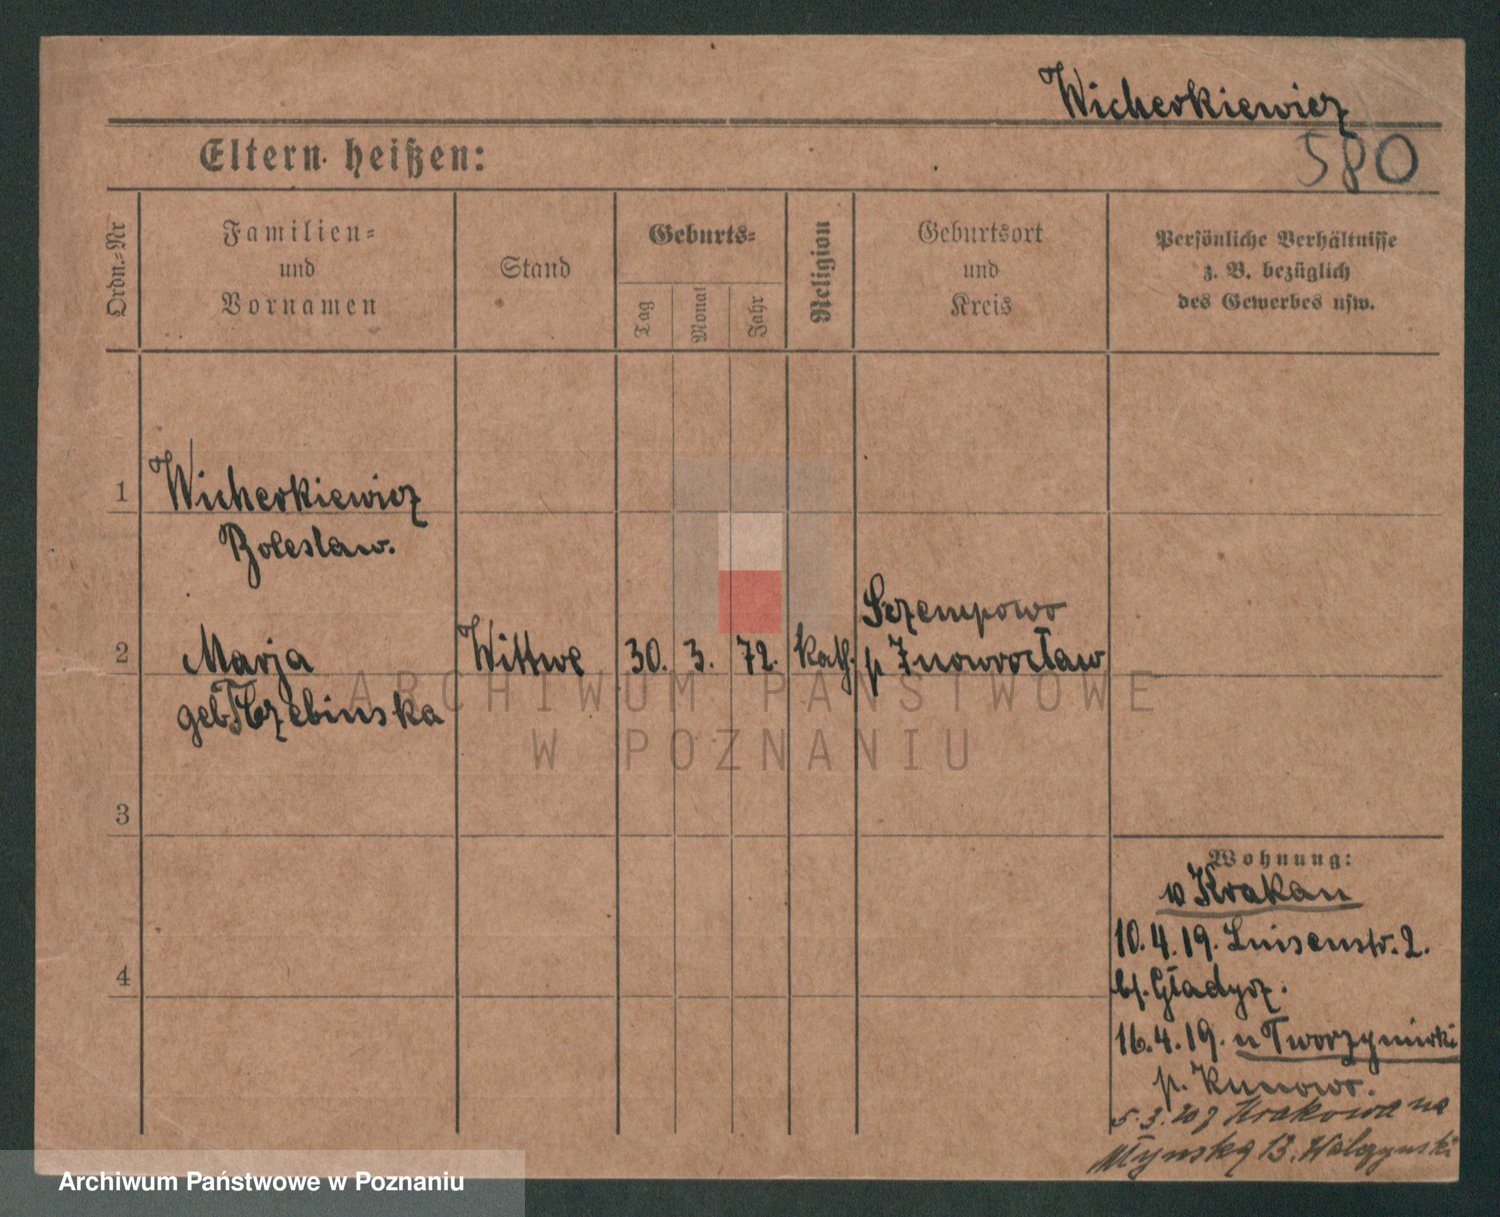 Wicherkiewicz
580
Eltern heißen:
Ordn.=Nr
Familien=
und
Vornamen
Stand
Geburts=
Tag
Monat
Jahr
Religion
Geburtsort
und
Kreis
Persönliche Verhältnisse
z. B. bezüglich
des Gewerbes usw.
1
Wicherkiewicz
Boleslaw.
2
Marja
geb.
Wittwe
30. 3. 72.
kath.
p Inowrocław
3
4
Wohnung:
Krakau
10.4.19. Luisenstr. 2.
bf. Gładysz.
16.4.19. n Tworzymirki
p. Kunowo.
5.3.20 z Krakowa na
Młyńską 13.
ARCHIWUM PAŃSTWOWE
W POZNANIU
Archiwum Państwowe w Poznaniu